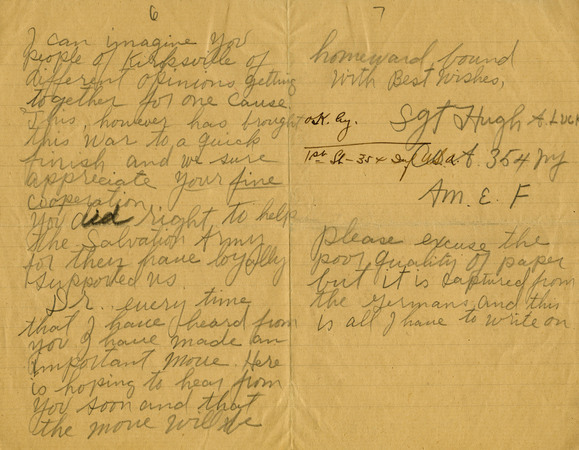 6
I can imagine you
people of Kirksville of
different opinions getting
together for one cause.
This, however has brought
this war to a quick
finish and we sure
appreciate your fine
cooperation.
You did right to help
the Salvation Army
for they have loyally
supported us.
Dr. every time
that I have heard from
you I have made an
important move. Here
is hoping to hear from
you soon and that
the move will be
7
homeward bound
With Best Wishes,
Sgt Hugh A.
O.K. by.
1st Lt - 354 Inf U.S.A.
354 Inf
Am. E. F
Please excuse the
poor quality of paper
but it is captured from
the Germans and this
is all I have to write on